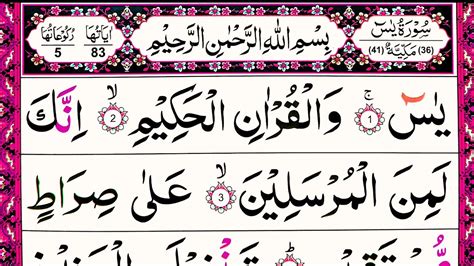 سُوْرَةُ يٰسٓ مَكِّيَّةٌ (36) (41) بِسْمِ اللّٰهِ الرَّحْمٰنِ الرَّحِيْمِ اٰيَاتُهَا 83 رُكُوْعَاتُهَا 5
يٰسٓ ۚ 1 وَالْقُرْاٰنِ الْحَكِيْمِ ۙ 2 اِنَّكَ
لَمِنَ الْمُرْسَلِيْنَ ۙ 3 عَلٰى صِرَاطٍ